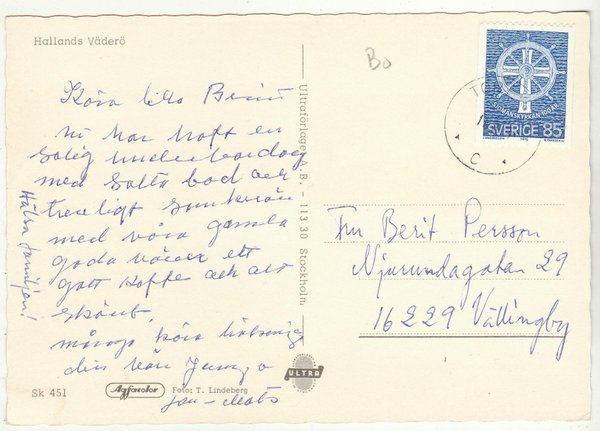 Hallands Väderö
Bo
Kära lilla Berit
vi har haft en
solig underbar dag
med salta bad och
trevligt samkväm
med våra gamla
goda vänner ett
gott kaffe och allt
skönt
många kära hälsningar
din vän
Jan-Mats
Hälsa familjen!
Sk 451
Agfacolor
Foto: T. Lindeberg
Ultraförlaget A.B. - 113 30 Stockholm.
ULTRA
TO
C
SJÖMANSKYRKAN 100 ÅR
SVERIGE 85
Fru Berit Persson
Njurundagatan 29
16229 Vällingby